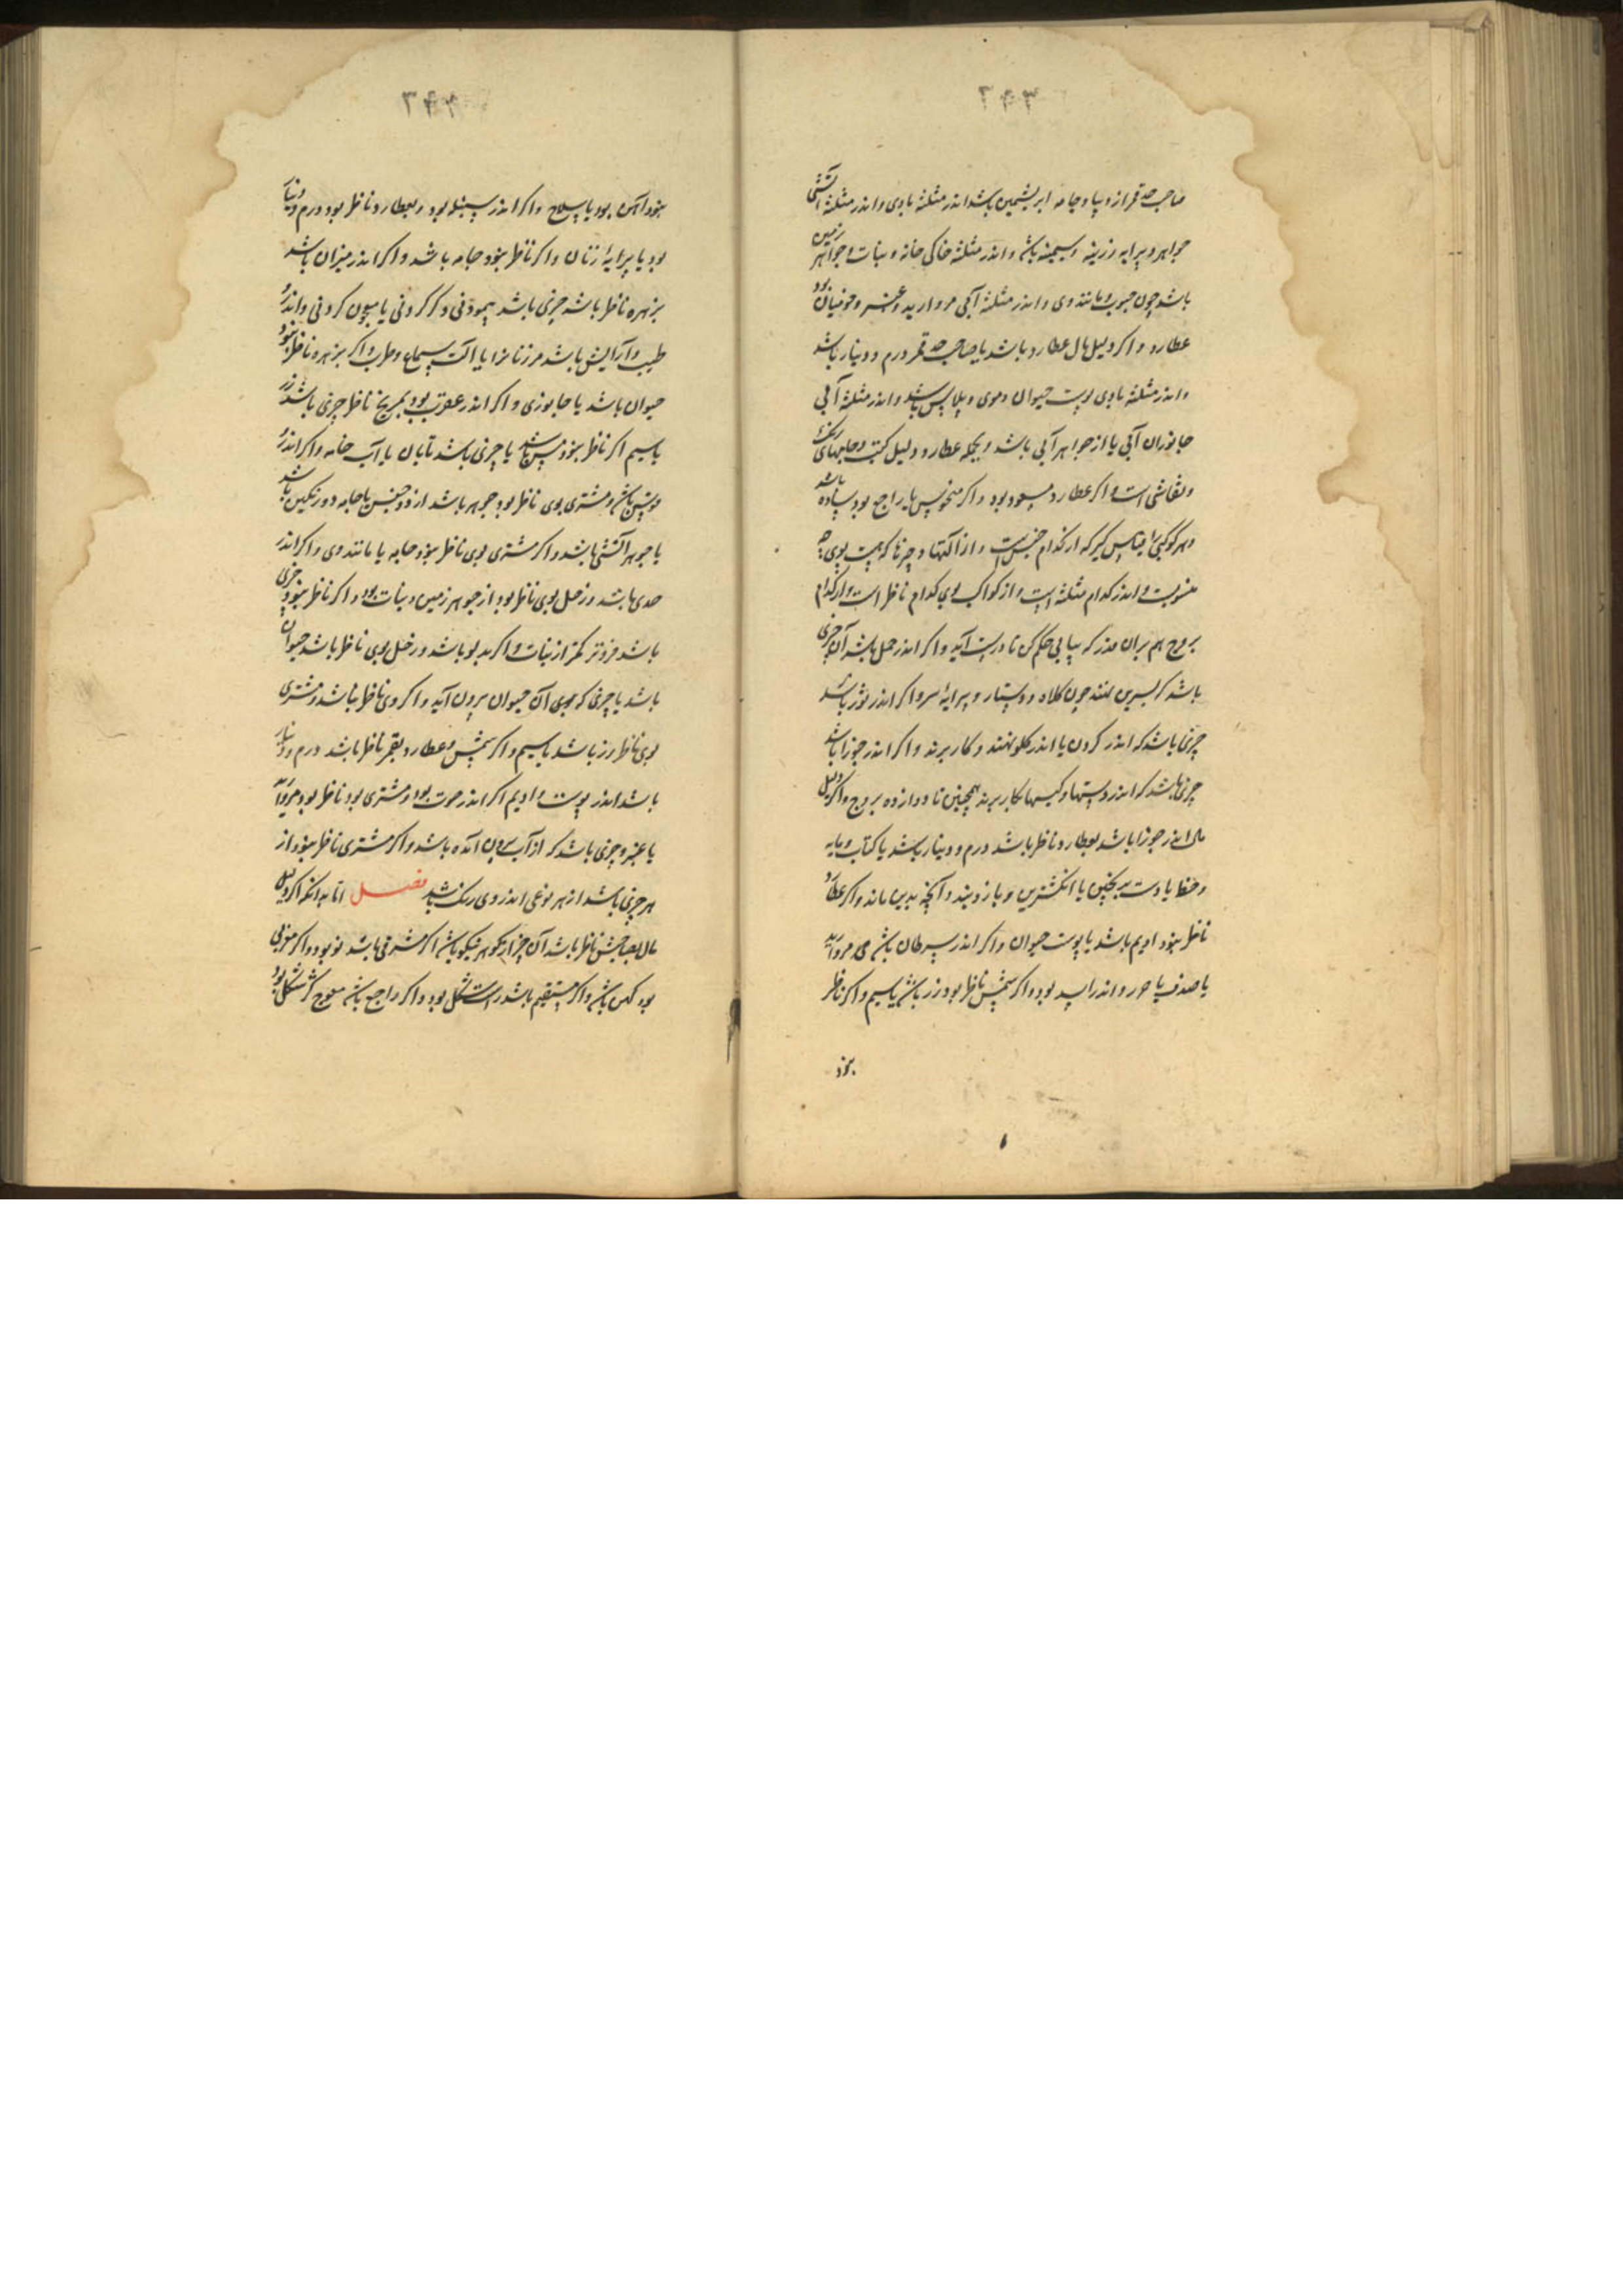 ۳۴۳
صاحب حد قمر از دیبا و جامه ابریشمین باشد اندر مثلثهٔ بادی و اندر مثلثهٔ آتشی
جواهر و پیرایه زرینه و سیمینه باشد و اندر مثلثهٔ خاکی خانه و نبات و جواهر زمین
باشد چون حبوب و مانند وی و اندر مثلثهٔ آبی مروارید و عنبر بود
عطارد و اکر دلیل مال عطارد باشد یا صاحب حد قمر درم و دینار باشد
و اندر مثلثهٔ بادی پوست حیوان و موی و پلاس باشد و اندر مثلثهٔ آبی
جانوران آبی یا از جواهر آبی باشد و بجمله عطارد دلیل کتب و جامهای رنگ
و نقاشی است و اکر عطارد مسعود بود و اکر منحوس یا راجع بود ساده باشد
و هر کوکبی را قیاس کیر که از کدام جنس است و از آلتها و چیزها که هست بوی چه
منسوبست و اندر کدام مثلثه است و از کواکب بوی کدام ناظر است و از کدام
بروج هم بران قدر که بیابی حکم کن تا درست آید و اکر اندر حمل باشد آن چیزی
باشد که بسر بر نهند چون کلاه و دستار و پیرایهٔ سر و اکر اندر ثور باشد
چیزی باشد که اندر کردن یا اندر کلو نهند و کار برند و اکر اندر جوزا باشد
چیزی باشد که اندر دستها و کیسها بکار برند همچنین تا دوازده بروج و اکر دلیل
مال اندر جوزا باشد بعطارد ناظر باشد درم و دینار باشد یا کتاب و مایه
و خط یا دست برنجن یا انکشترین و بازوبند و آنچه بدین ماند و اکر عطارد
ناظر نبود ادیم باشد یا پوست حیوان و اکر اندر سرطان باشد مروارید
یا صدف یا و اندر اسد بود و اکر شمس ناظر بود زر باشد یا سیم و اکر ناظر
نبود
۳۴۴
نبود آهن بود یا سلاح و اکر اندر سنبله بود و بعطارد ناظر بود درم و دینار
بود یا پیرایهٔ زنان و اکر ناظر نبود جامه باشد و اکر اندر میزان باشد
بزهره ناظر باشد چیزی باشد پیمودنی و کردنی یا کردنی و اندر
طیب و آرایش باشد مر زنانرا یا آلت سماع و طرب و اکر بزهره ناظر نبود
حیوان باشد یا جانوری و اکر اندر عقرب بود بمریخ ناظر چیزی باشد زر
یا سیم اکر ناظر نبود مس باشد یا چیزی باشد تابان یا آب خانه و اکر اندر
قوس باشد و مشتری بوی ناظر بود جوهر باشد از دو جنس یا جامه دو رنکین باشد
یا جوهر آتشی باشد و اکر مشتری بوی ناظر نبود جامه یا مانند وی و اکر اندر
جدی باشد و زحل بوی ناظر بود از جوهر زمین و نبات بود و اکر ناظر نبود چیزی
باشد فروتر کمتر از نبات و اکر بدلو باشد و زحل بوی ناظر باشد حیوان
باشد یا چیزی که موی آن حیوان بیرون آید و اکر وی ناظر نباشد و مشتری
بوی ناظر زر باشد یا سیم و اکر شمس و عطارد بقمر ناظر باشد درم و دینار
باشد اندر پوست و ادیم اکر اندر حوت بود و مشتری بود ناظر بود مروارید
یا عنبر و چیزی باشد که از آب بیرون آمده باشد و اکر مشتری ناظر نبود از
هر چیزی باشد از هر نوعی اندر وی رنک باشد فصل اما بدانکه اکر دلیل
مال بصاحبش ناظر باشد آن چیز از کوهر نیکو باشد اکر مشرقی باشد نو بود و اکر مغربی
بود کهن باشد و اکر مستقیم باشد راست شکل بود و اکر راجع باشد معوج کژ شکل بود